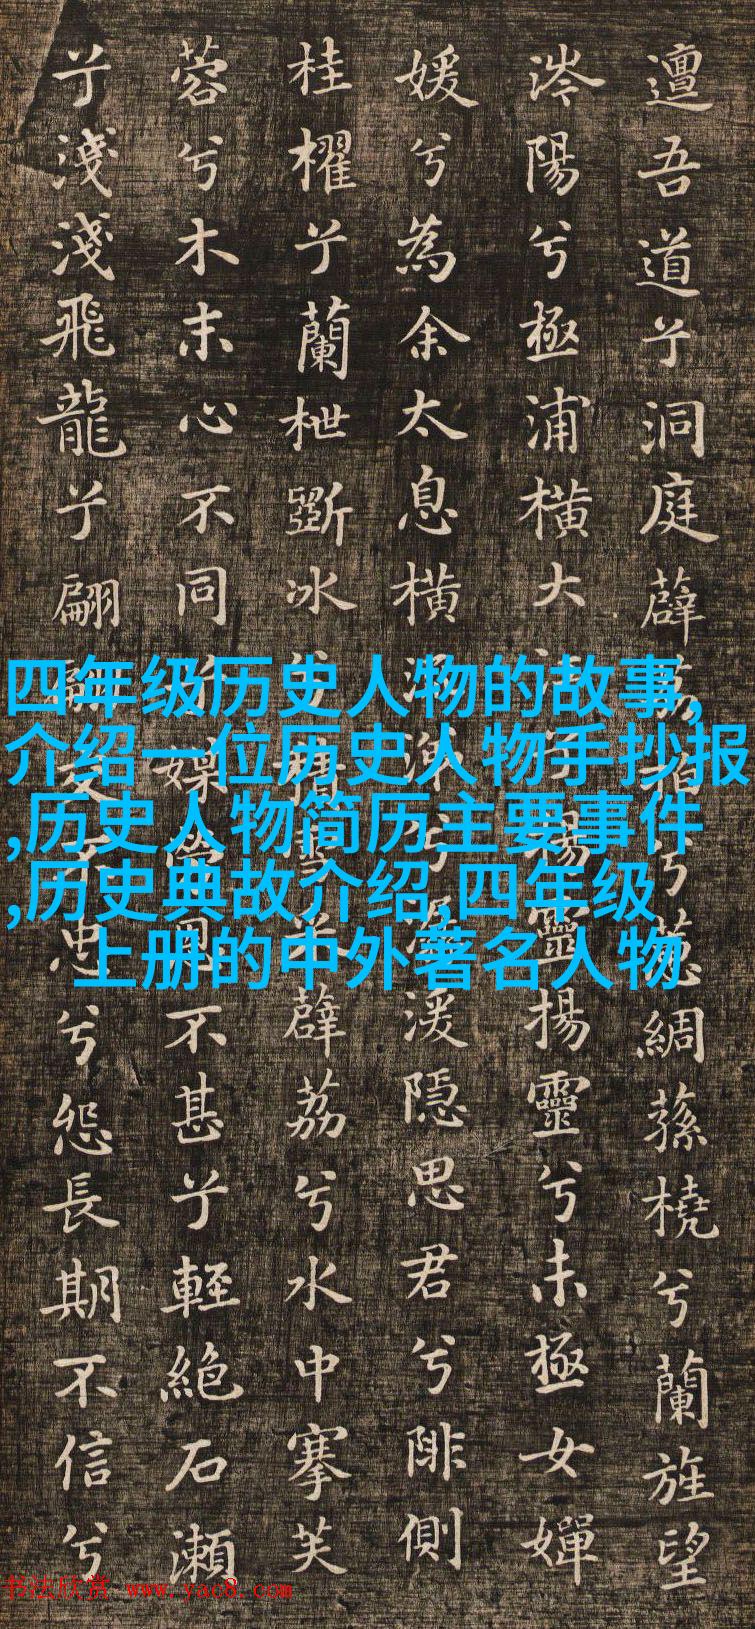 邅吾道兮洞庭薜荔柏兮蕙綢蓀橈兮蘭旌望
涔陽兮極浦橫大江兮揚靈揚靈兮未極女嬋
媛兮為余太息橫流涕兮潺湲隱思君兮陫側
桂櫂兮蘭枻斵冰兮積雪采薜荔兮水中搴芙
蓉兮木末心不同兮媒勞恩不甚兮輕絕石瀨
兮淺淺飛龍兮翩翩交不忠兮怨長期不信兮
四年级历史人物的故事,
介绍一位历史人物手抄报
,历史人物简历主要事件
,历史典故介绍,四年级
上册的中外著名人物
书法欣赏 www.yac8.com